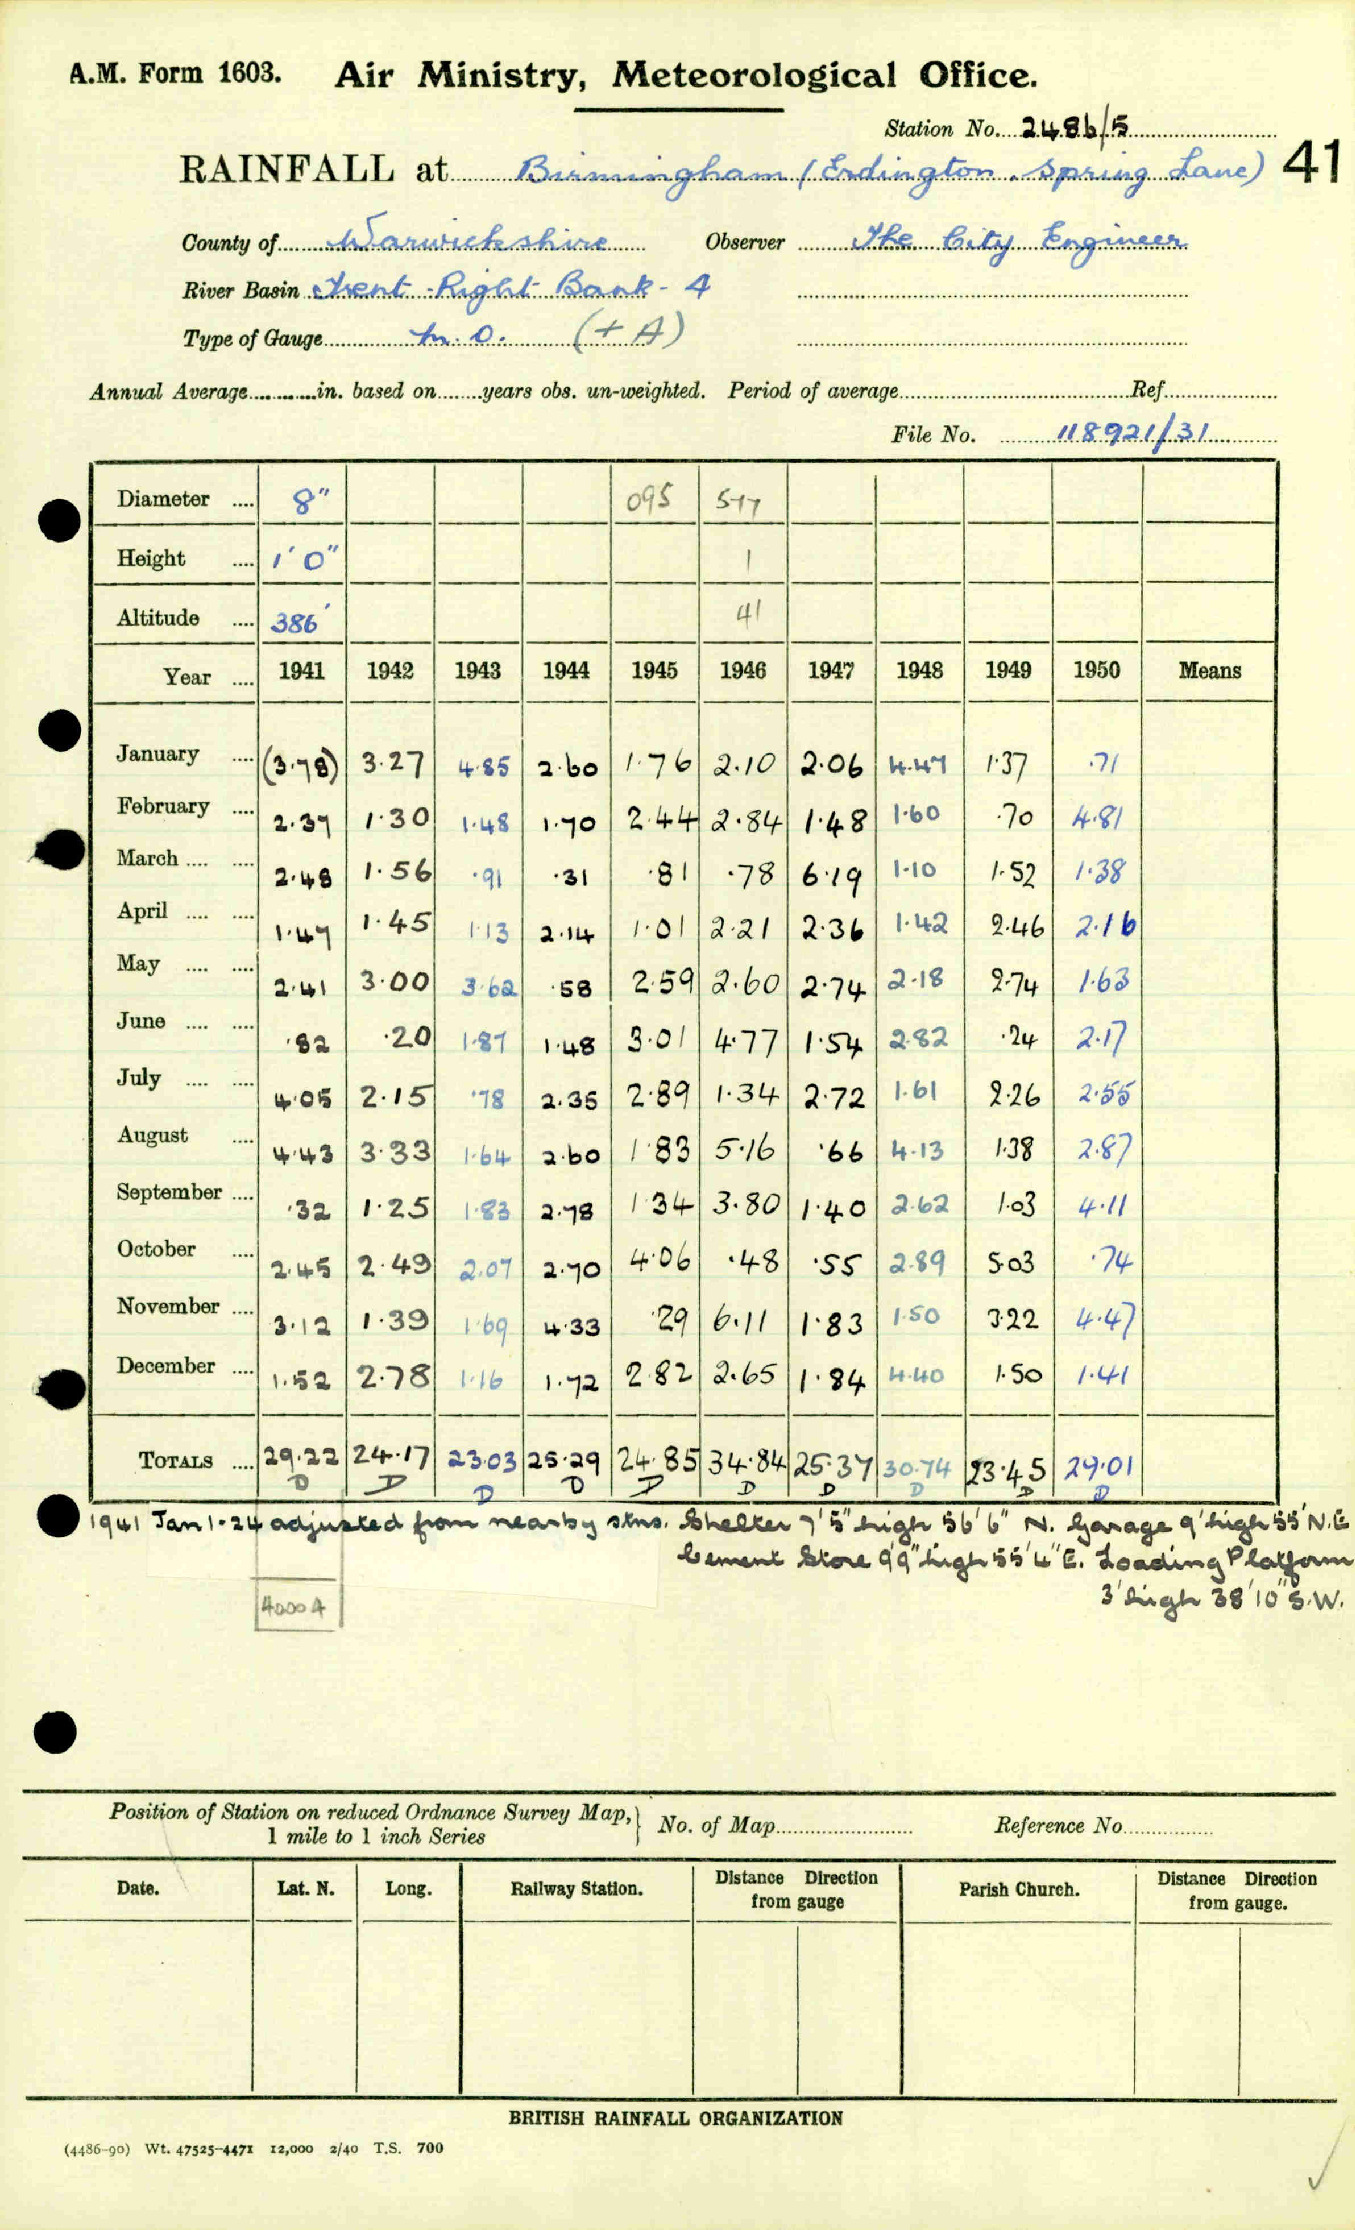 A.M. Form 1603. Air Ministry, Meteorological Office.
Station No. 2486/5
RAINFALL at Birmingham (Erdington. Spring Lane) 41
County of Warwickshire Observer The City Engineer
River Basin Trent Right Bank - 4
Type of Gauge M. O. (+ A)
Annual Average in. based on years obs. un-weighted. Period of average Ref.
File No. 118921/31
Diameter 8" 095 577
Height 1' 0" 1
Altitude 386' 41
Year 1941 1942 1943 1944 1945 1946 1947 1948 1949 1950 Means
January (3.78) 3.27 4.85 2.60 1.76 2.10 2.06 4.47 1.37 .71
February 2.37 1.30 1.48 1.70 2.44 2.84 1.48 1.60 .70 4.81
March 2.48 1.56 .91 .31 .81 .78 6.19 1.10 1.52 1.38
April 1.47 1.45 1.13 2.14 1.01 2.21 2.36 1.42 2.46 2.16
May 2.41 3.00 3.62 .58 2.59 2.60 2.74 2.18 2.74 1.63
June .82 .20 1.87 1.48 3.01 4.77 1.54 2.82 .24 2.17
July 4.05 2.15 .78 2.35 2.89 1.34 2.72 1.61 2.26 2.55
August 4.43 3.33 1.64 2.60 1.83 5.16 .66 4.13 1.38 2.87
September .32 1.25 1.83 2.78 1.34 3.80 1.40 2.62 1.03 4.11
October 2.45 2.49 2.07 2.70 4.06 .48 .55 2.89 5.03 .74
November 3.12 1.39 1.69 4.33 .29 6.11 1.83 1.50 3.22 4.47
December 1.52 2.78 1.16 1.72 2.82 2.65 1.84 4.40 1.50 1.41
TOTALS 29.22 24.17 23.03 25.29 24.85 34.84 25.37 30.74 23.45 29.01
D D D D D D D D D D
1941 Jan 1-24 adjusted from nearby stns. Shelter 7'5" high 56'6" N. Garage 9' high 55' N.E
Cement Store 9'9" high 55'4" E. Loading Platform
3' high 38'10" S.W.
4000 A
Position of Station on reduced Ordnance Survey Map, } No. of Map Reference No
1 mile to 1 inch Series
Date. Lat. N. Long. Railway Station. Distance Direction from gauge Parish Church. Distance Direction from gauge.
BRITISH RAINFALL ORGANIZATION
(4486-90) Wt. 47525-4471 12,000 2/40 T.S. 700